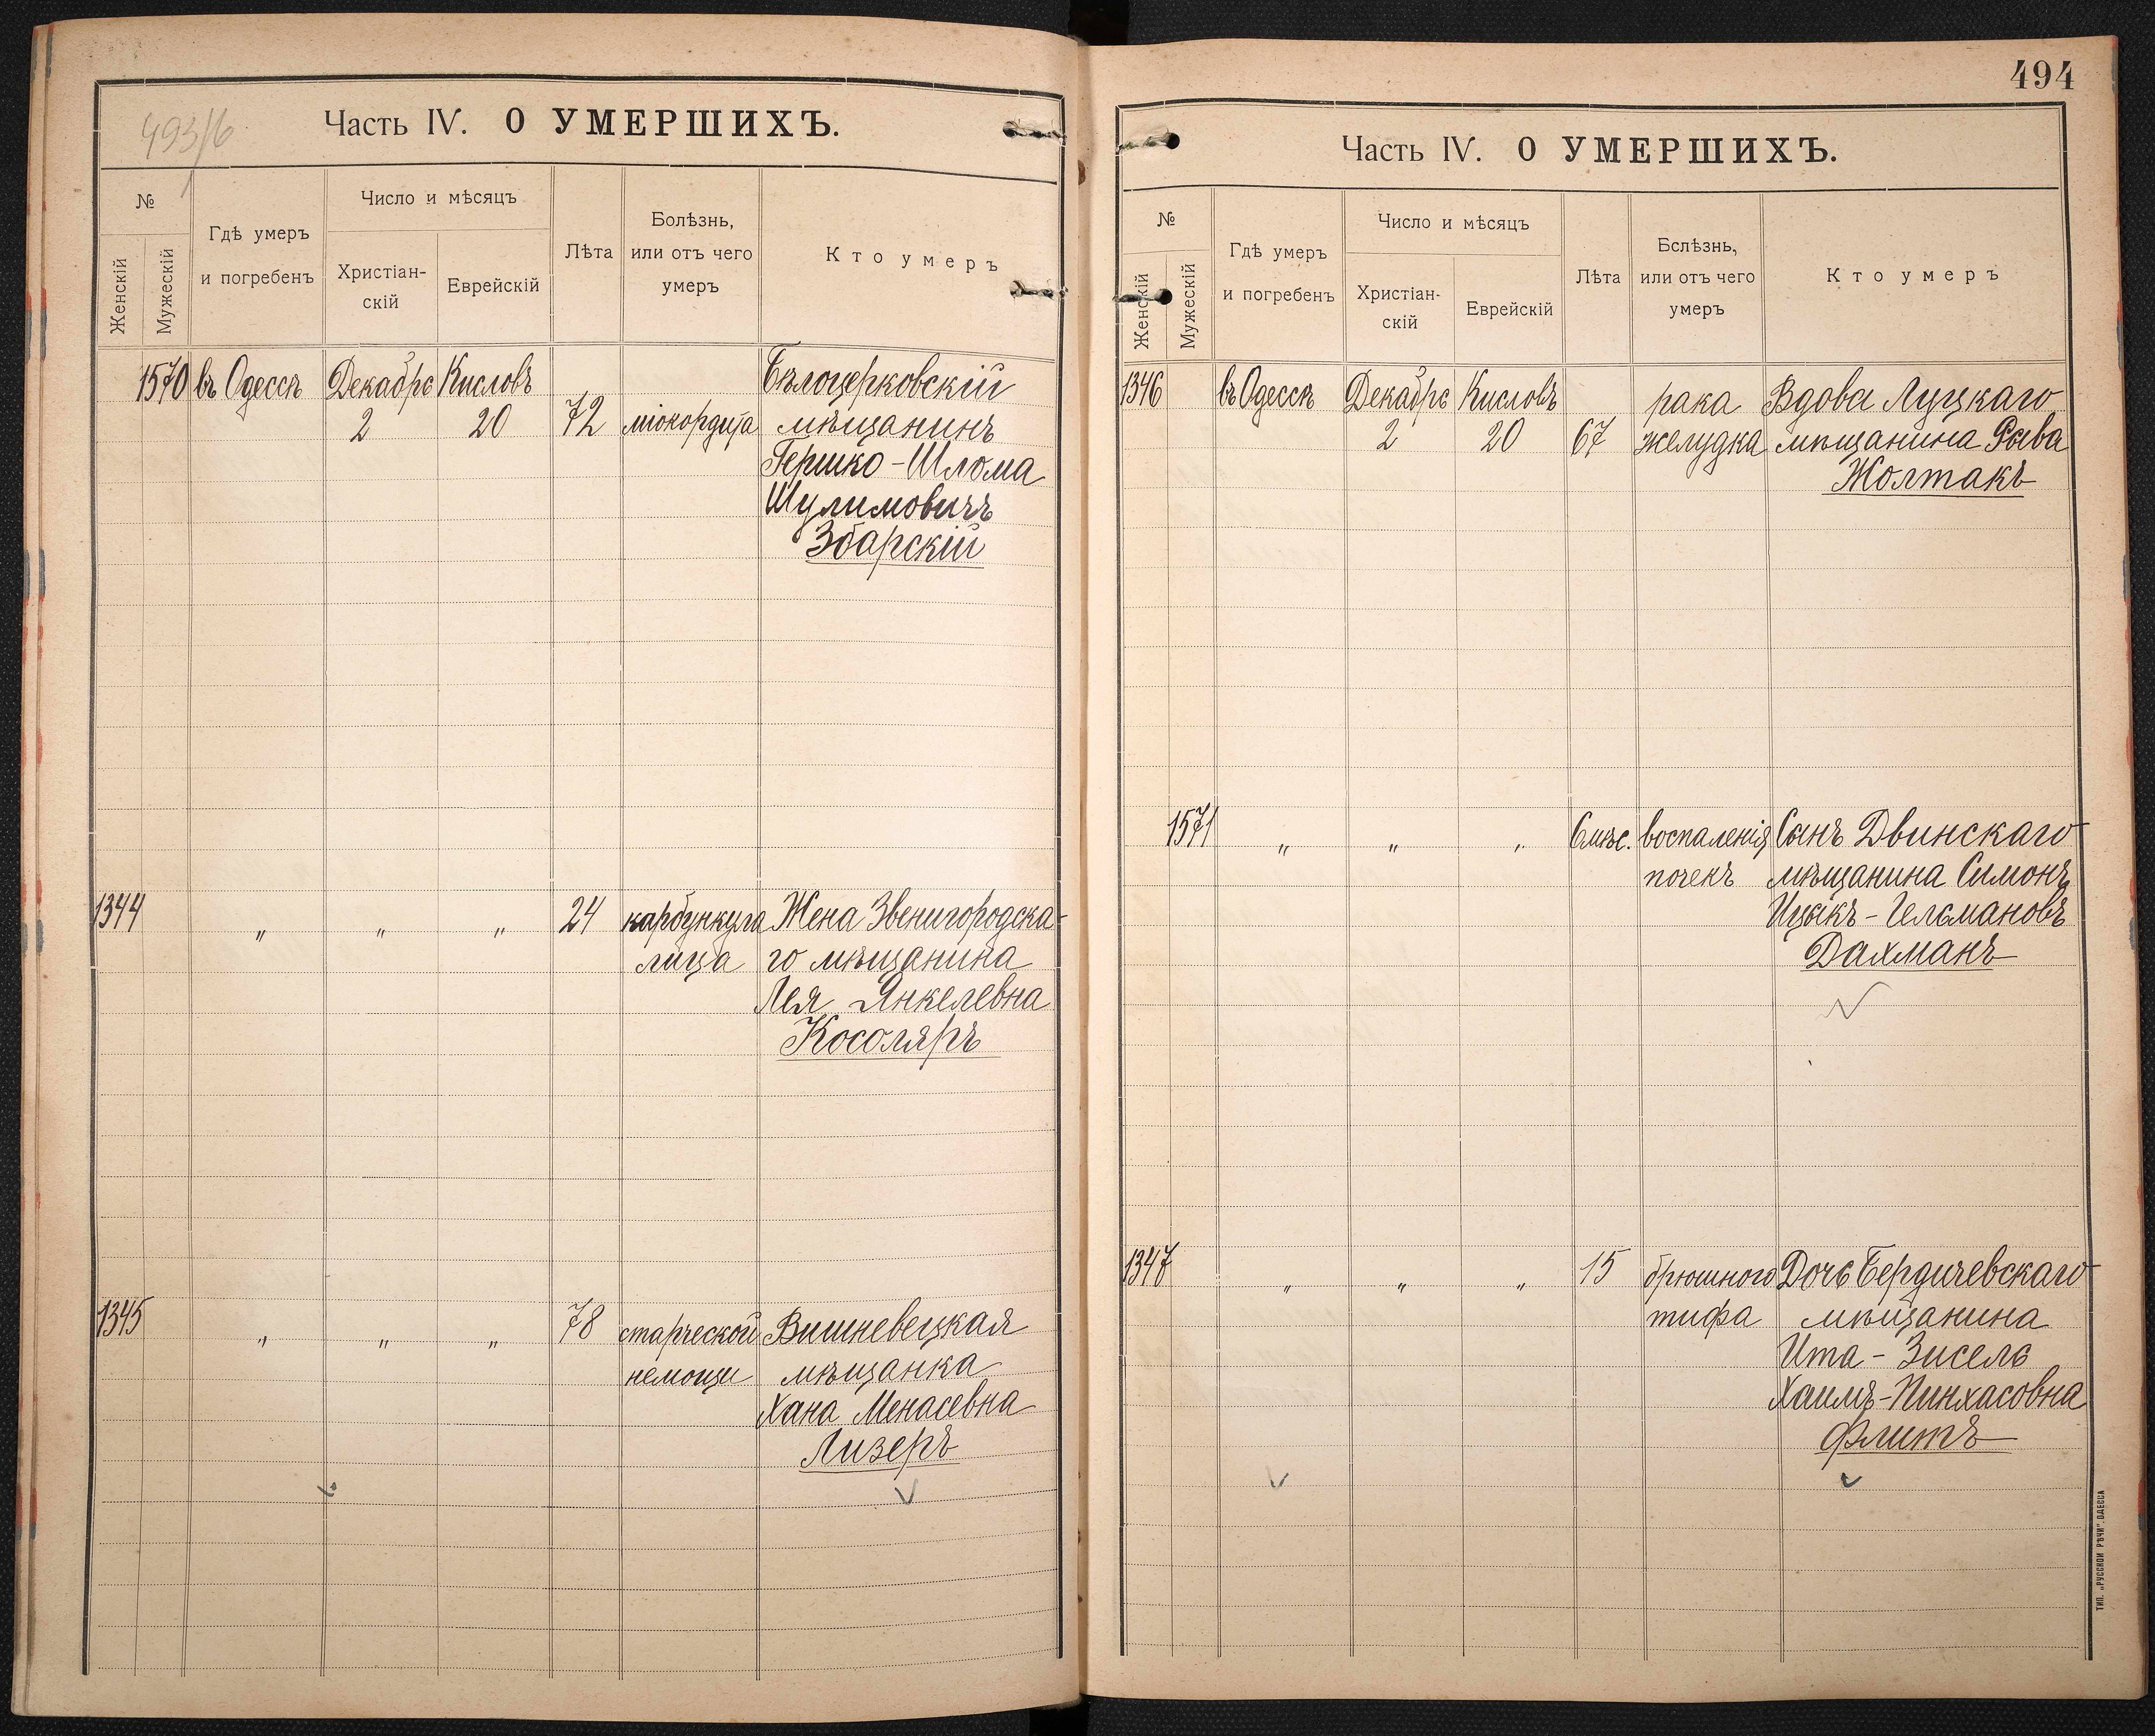 493/б
Часть IV. О УМЕРШИХЪ.
№
Женскій
Мужескій
Гдѣ умеръ
и погребенъ
Число и мѣсяцъ
Христіан-
скій
Еврейскій
Лѣта
Болѣзнь,
или отъ чего
умеръ
Кто умеръ
1570 въ Одессѣ Декабрь Кисловъ Бѣлоцерковскій
2 20 72 міокордита мѣщанинъ
Гершко-Шлома
Шулимовичъ
Збарскій
1344 " " " 24 карбункула Жена Звенигородска-
лица го мѣщанина
Лея Янкелевна
Косоляръ
1345 " " " 78 старческой Вишневецкая
немощи мѣщанка
Хана Менасевна
Лизеръ
494
Часть IV. О УМЕРШИХЪ.
№
Женскій
Мужескій
Гдѣ умеръ
и погребенъ
Число и мѣсяцъ
Христіан-
скій
Еврейскій
Лѣта
Бслѣзнь,
или отъ чего
умеръ
Кто умеръ
1346 въ Одессѣ Декабрь Кисловъ рака Вдова Луцкаго
2 20 67 желудка мѣщанина Рыва
Жолтакъ
1571 " " " 6 мѣс. воспаленія Сынъ Двинскаго
почекъ мѣщанина Симонъ
Ицыкъ-Гельмановъ
Дахманъ
1347 " " " 15 брюшного Дочь Бердичевскаго
тифа мѣщанина
Ита-Зисель
Хаимъ-Пинхасовна
Флитъ
ТИП. „РУССКОЙ РѢЧИ". ОДЕССА